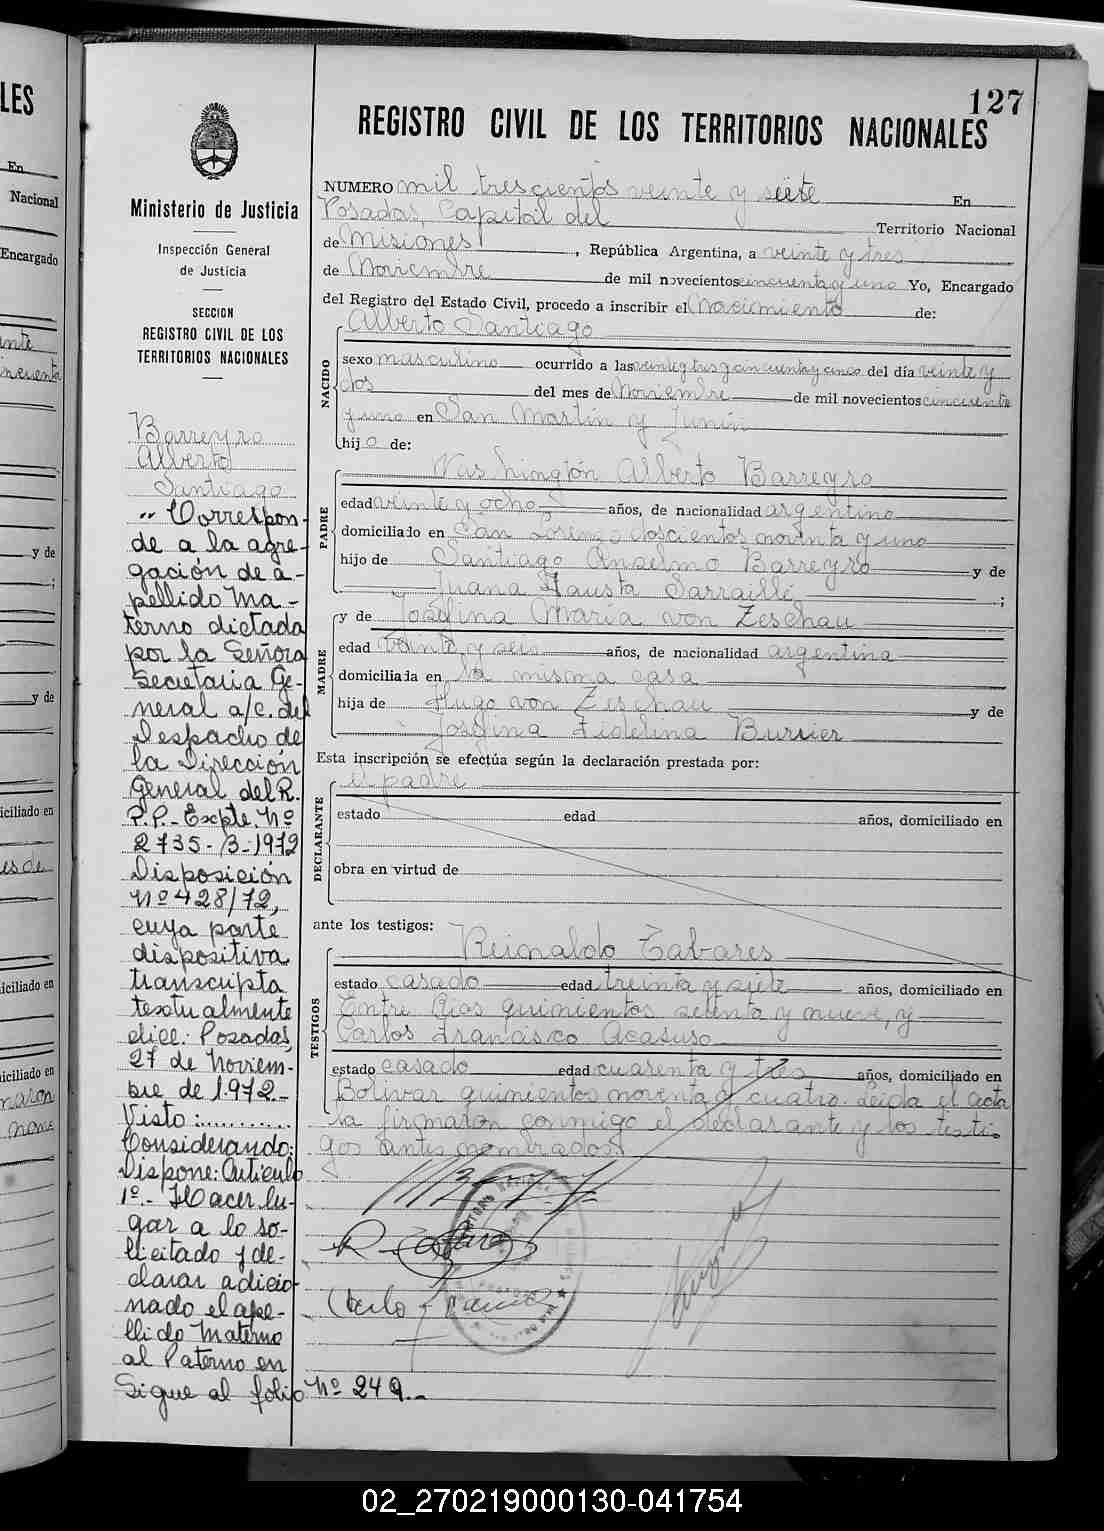 127
REGISTRO CIVIL DE LOS TERRITORIOS NACIONALES
Ministerio de Justicia
Inspección General
de Justicia
SECCION
REGISTRO CIVIL DE LOS
TERRITORIOS NACIONALES
Barreyro
Alberto
Santiago
" Correspon-
de a la agre-
gación de a-
pellido Ma-
terno dictada
por la Señora
Secretaria Ge-
neral a/c. del
Despacho de
la Dirección
General del R.
P.P.- Expte. Nº
2735-B-1972
Disposición
Nº 428/72,
cuya parte
dispositiva
transcripta
textualmente
dice: Posadas,
27 de Noviem-
bre de 1.972.-
Visto:............
Considerando:
Dispone: Artículo
1º.- Hacer lu-
gar a lo so-
licitado y de-
clarar adicio-
nado el ape-
llido Materno
al Paterno en
Sigue al folio Nº 249.-
NUMERO mil trescientos veinte y siete En
Posadas, Capital del Territorio Nacional
de Misiones, República Argentina, a veinte y tres
de Noviembre de mil novecientos cincuenta y uno Yo, Encargado
del Registro del Estado Civil, procedo a inscribir el Nacimiento de:
Alberto Santiago
NACIDO
sexo masculino ocurrido a las veinte y tres y cincuenta y cinco del día veinte y
dos del mes de Noviembre de mil novecientos cincuenta
y uno en San Martín y Junín
hijo de:
Washington Alberto Barreyro
PADRE
edad veinte y ocho años, de nacionalidad argentino
domiciliado en San Lorenzo doscientos noventa y uno
hijo de Santiago Anselmo Barreyro y de
Juana Fausta Sarraillé ;
y de Josefina María von Zeschau
MADRE
edad veinte y seis años, de nacionalidad argentina
domiciliada en la misma casa
hija de Hugo von Zeschau y de
Josefina Fidelina Burrier
Esta inscripción se efectúa según la declaración prestada por:
el padre
DECLARANTE
estado edad años, domiciliado en
obra en virtud de
ante los testigos:
Reinaldo Tabares
TESTIGOS
estado casado edad treinta y siete años, domiciliado en
Entre Ríos quinientos setenta y nueve, y
Carlos Francisco Acasuso
estado casado edad cuarenta y tres años, domiciliado en
Bolívar quinientos noventa y cuatro. Leída el Acta
la firmaron conmigo el declarante y los testi-
gos antes nombrados.
LES
En
Nacional
Encargado
y de
;
y de
iciliado en
iciliado en
iciliado en
02_270219000130-041754